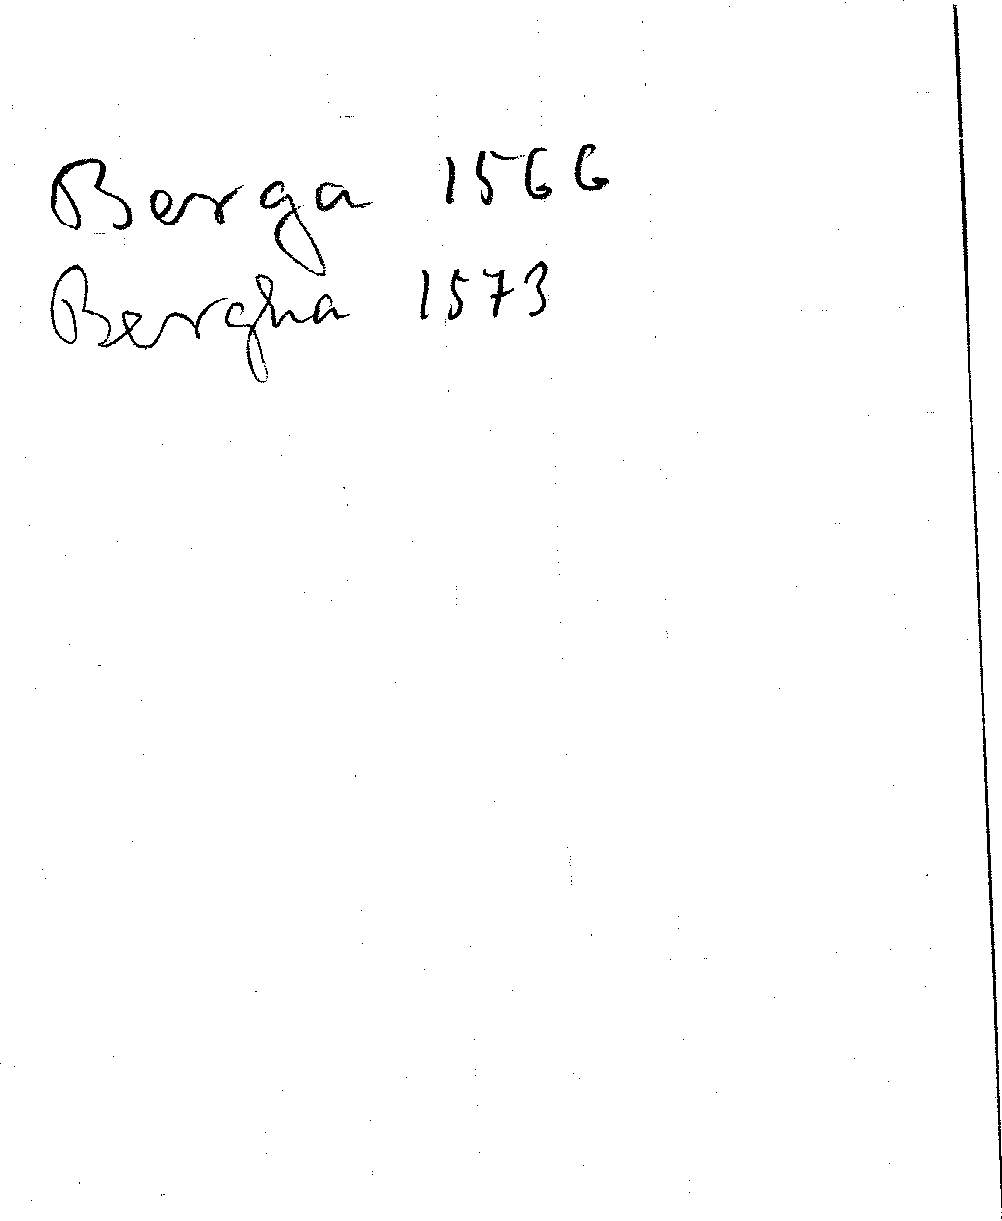 Berga 1566
Bergha 1573